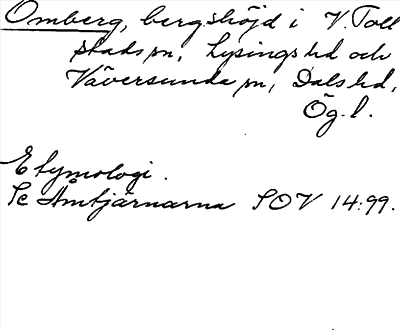 Omberg, bergshöjd i V. Toll
stads sn, Lysings hd och
Väversunda sn, Dals hd,
Ög. l.
Etymologi.
Se Åmtjärnarna SOV 14:99.